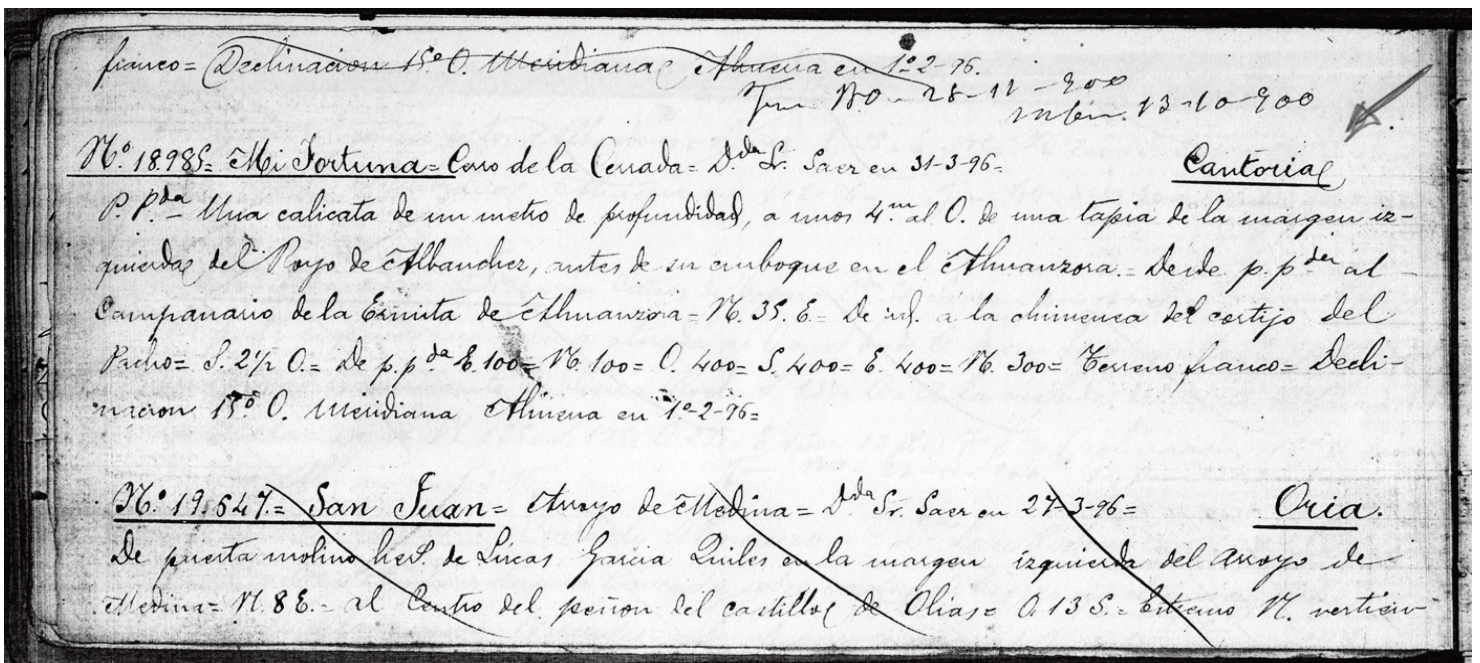 franco= Declinacion 15º O. Meridiana Almeria en 1º-2-96.
28-11-900
13-10-900
Nº 18.985= Mi Fortuna= Cerro de la Cerrada= D.da Sr. Saez en 31-3-96= Cantoria
P. P.da Una calicata de un metro de profundidad, a unos 4.m al O. de una tapia de la margen iz-
quierda del Royo de Albanchez, antes de su emboque en el Almanzora= Desde p. p.da al
Campanario de la Ermita de Almanzora= N. 35. E.= De id. a la chimenea del cortijo del
Pacho= S. 2 1/2 O.= De p. p.da E. 100= N. 100= O. 400= S. 400= E. 400= N. 300= Terreno franco= Decli-
nacion 15º O. Meridiana Almeria en 1º-2-96=
Nº 19.647.= San Juan= Arroyo de Medina= D.da Sr. Saez en 27-3-96= Oria.
De puerta molino de Lucas Garcia Quiles en la margen izquierda del arroyo de
Medina= N. 8 E.- al Centro del peñon del castillo de Olias= O. 13 S.- Estremo N. vertien